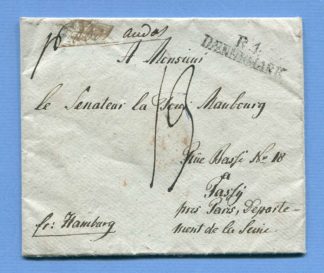 R. 4.
DANEMARK
A Monsieur
le Senateur la Tour Maubourg
13
Rüe Basse No 18
a
Passy
pres Paris, Departe-
ment de la Seine
fr: Hamburg